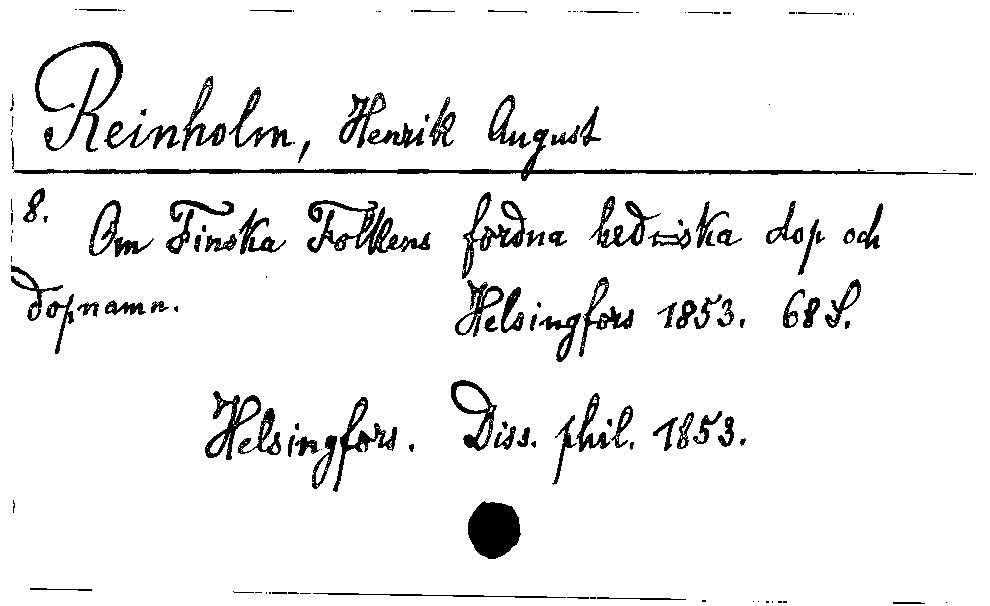 Reinholm, Henrik August
8. Om Finska Folkens fordna hedniska dop och
dopnamn. Helsingfors 1853. 68 S.
Helsingfors. Diss. phil. 1853.